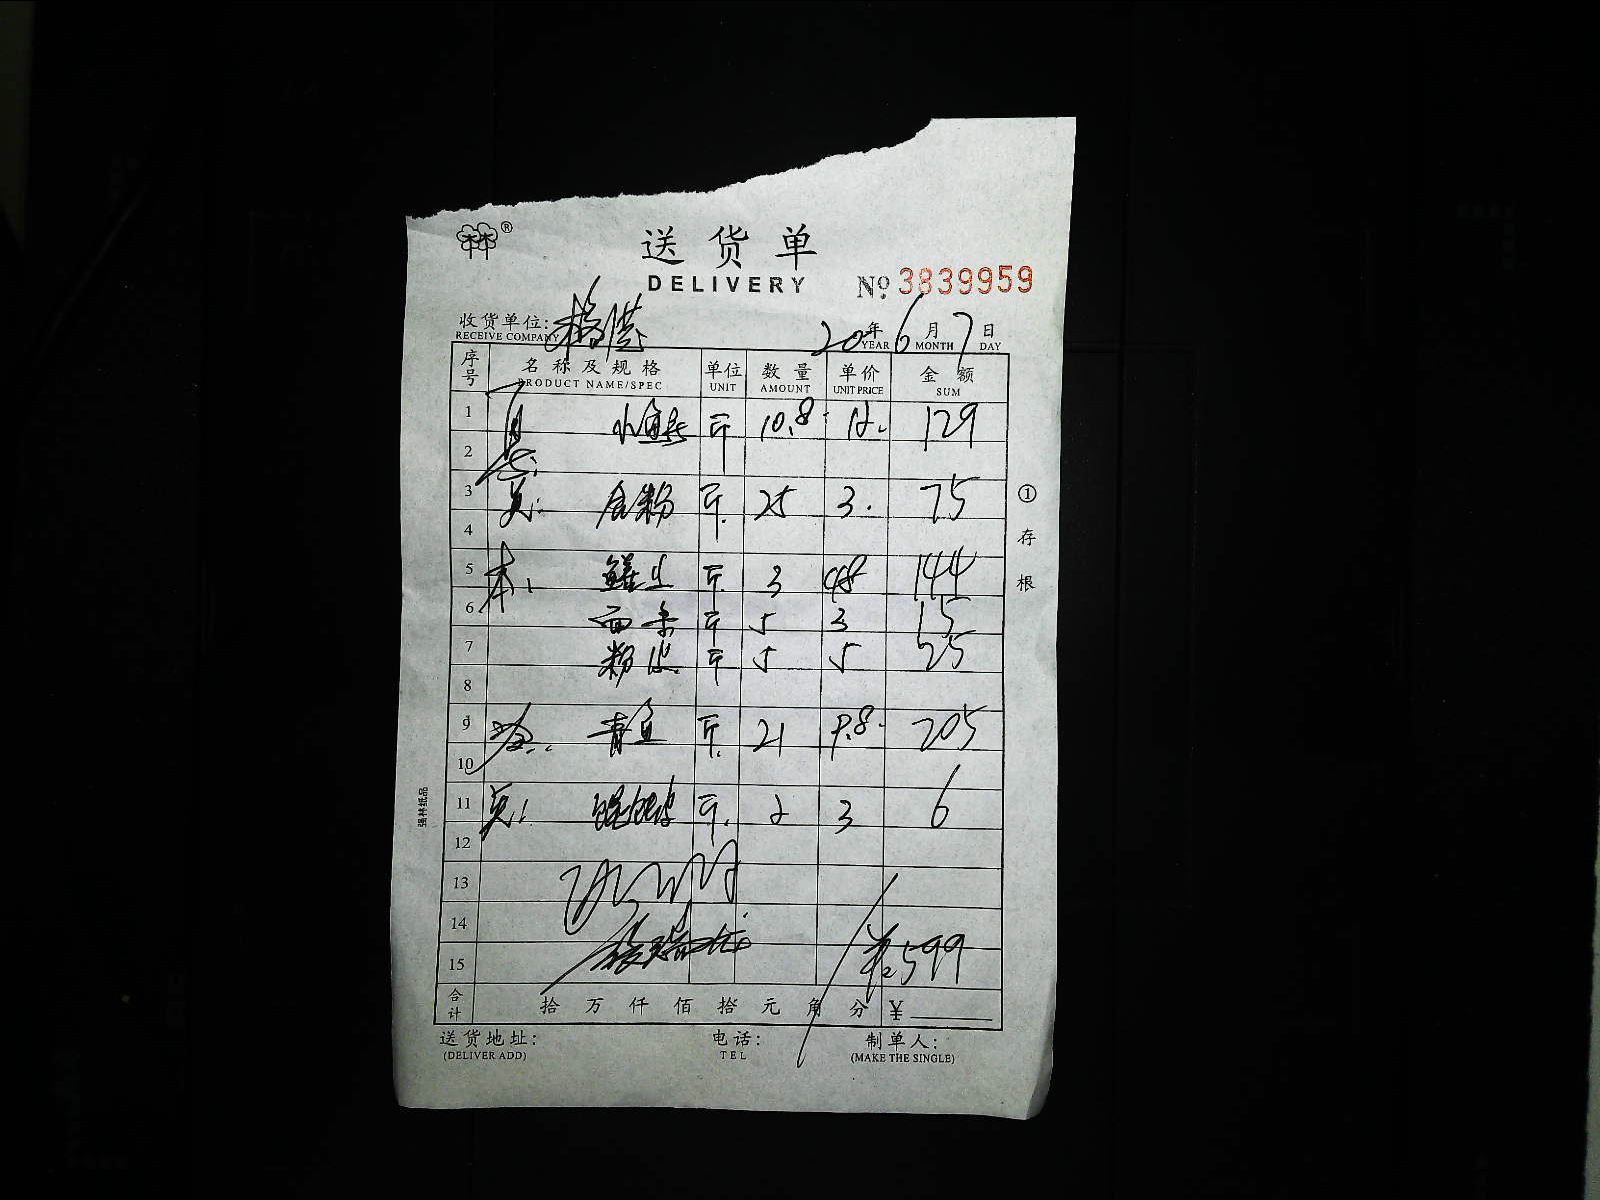 林林®
送货单
DELIVERY
№ 3839959
收货单位:
RECEIVE COMPANY
20年6月7日
YEAR MONTH DAY
序号 名称及规格 单位 数量 单价 金额
PRODUCT NAME/SPEC UNIT AMOUNT UNIT PRICE SUM
1 斤 10.8 12. 129
2
3 斤 25 3. 75
4
5 斤 3 48 144
6 面条 斤 5 3 15
7 粉皮 斤 5 5 25
8
9 青鱼 斤 21 9.8 205
10
11 斤 2 3 6
12
13
14
15 599
合计 拾万仟佰拾元角分 ¥
送货地址: 电话: 制单人:
(DELIVER ADD) TEL (MAKE THE SINGLE)
①存根
强林纸品